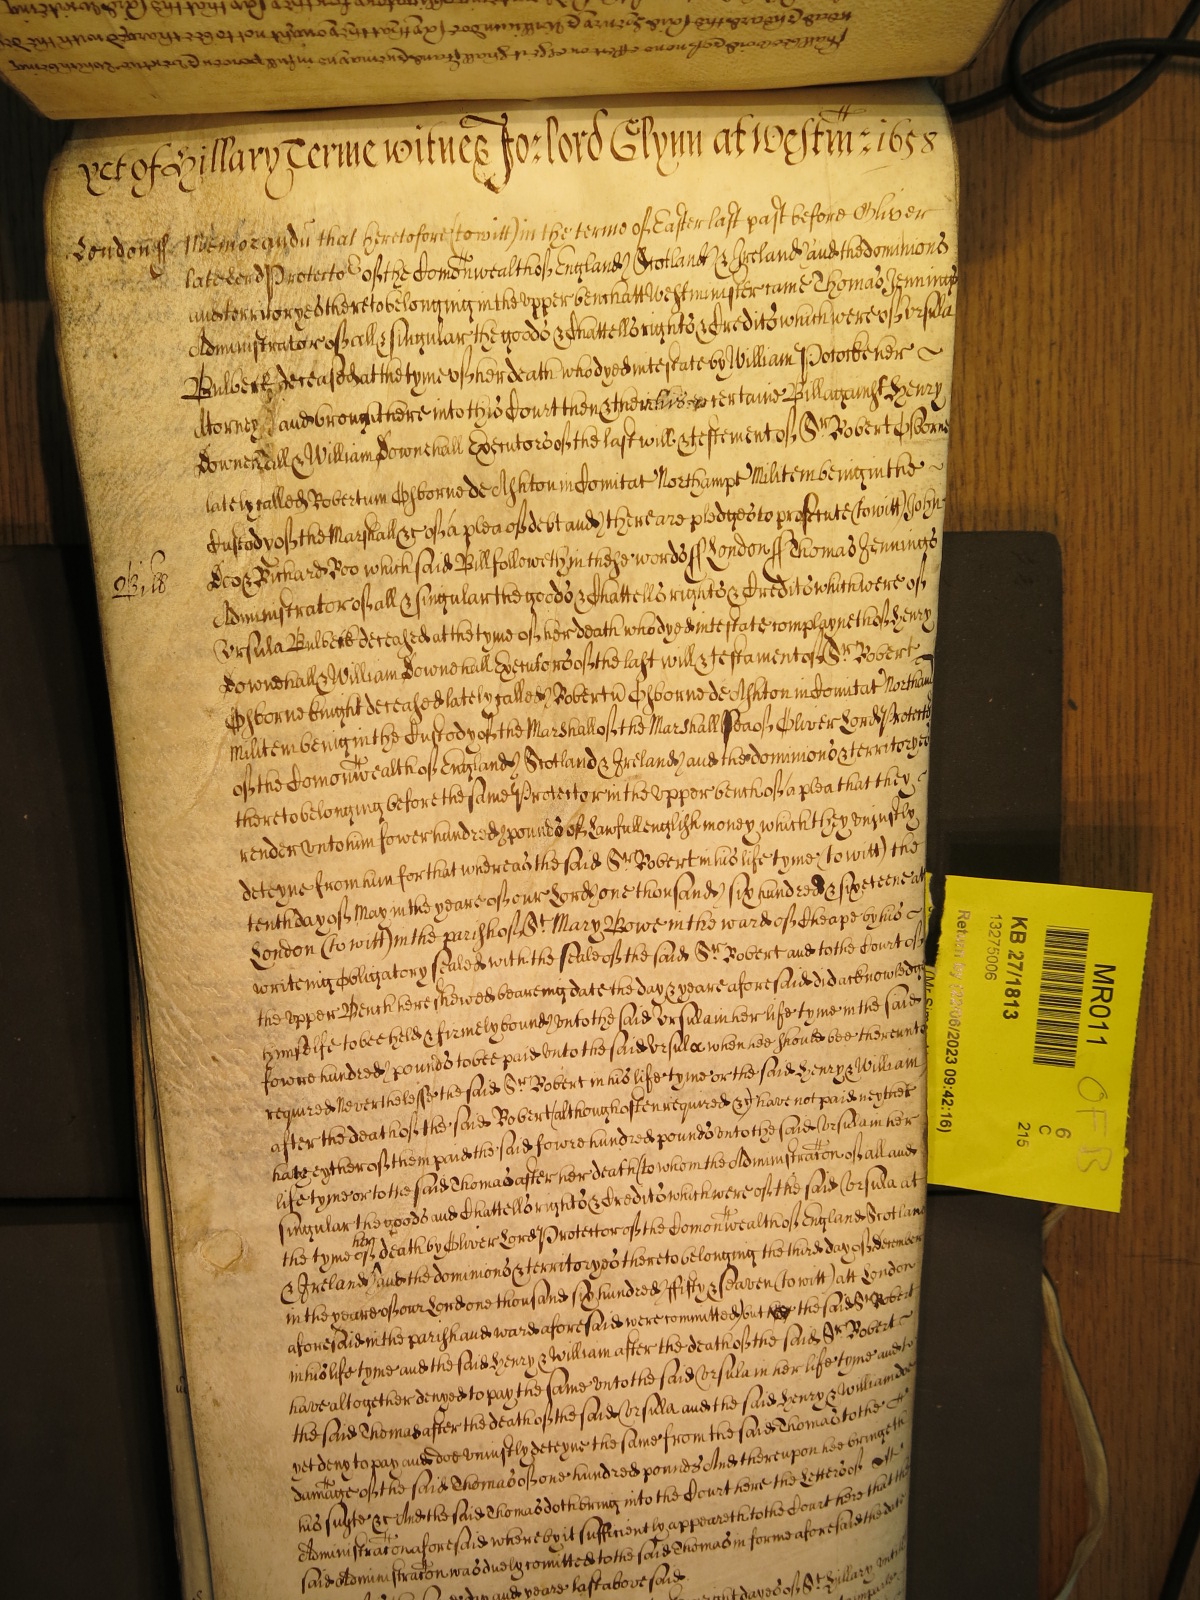 yet of Hillary Terme witnes Jo: lord Glynn at Westmr: 1658
London ss Memorandu that heretofore (to witt) in the terme of Easter last past before Oliver
late Lord Protector of the Comonwealth of England Scotland & Ireland and the dominions
and territoryes thereto belonging in the upper bench att Westminster came Thomas Jennings
Administrator of all & singular the goods & Chattells rights & Credits which were of Ursula
Bulbeck deceased at the tyme of her death who dyed intestate by William
Attorney and brought here into this Court then & there certaine Bill against Henry
Downehall & William Downehall Executors of the last will & testement of Sr Robert Osborne
lately called Robertum Osborne de Ashton in Comitat Northampt Militem being in the
Custody of the Marshall &c of a plea of debt and there are pledges to prosecute (to witt) John
Doo & Richard Roo which said Bill followeth in these words ss London ss Thomas Jennings
Bill
Administrator of all & singular the goods & Chattells rights & Credits which were of
Ursula Bulbeck deceased at the tyme of her death who dyed intestate complayneth of Henry
Downehall & William Downehall Executors of the last will & testament of Sr Robert
Osborne knight deceased lately called Robertu Osborne de Ashton in Comitat Northam
militem being in the Custody of the Marshall of the Marshallsea of Oliver Lord Protector
of the Comonwealth of England Scotland & Ireland and the dominions & territoryes
thereto belonging before the same Protector in the upper bench of a plea that they
render unto him fower hundred pounds of Lawfull english money which they uniustly
deteyne from him for that whereas the said Sr Robert in his life tyme (to witt) the
tenth day of May in the yeare of our Lord one thousand six hundred & sixteene at
London (to witt) in the parish of St Mary Bowe in the ward of Cheape by his
writeing Obligatory sealed with the seale of the said Sr Robert and to the Court of
the upper Bench here shewed beareing date the day & yeare aforesaid did acknowledge
himselfe to bee held & firmely bound unto the said Ursula in her life tyme in the said
fowre hundred pounds to bee paid unto the said Ursula when hee should bee thereunto
required Neverthelesse the said Sr Robert in his life tyme or the said Henry & William
after the death of the said Robert (although often required &c) have not paid neyther
hath eyther of them paid the said fowre hundred pounds unto the said Ursula in her
life tyme or to the said Thomas after her death (to whom the Administration of all and
singular the goods and Chattells rights & Credits which were of the said Ursula at
the tyme of her death by Oliver Lord Protector of the Comonwealth of England Scotland
& Ireland and the dominions & territoryes thereto belonging the third day of december
in the yeare of our Lord one thousand six hundred fifty & seaven (to witt) att London
aforesaid in the parish and ward aforesaid were committed) but the said Sr Robert
in his life tyme and the said Henry & William after the death of the said Sr Robert
have altogether denyed to pay the same unto the said Ursula in her life tyme and to
the said Thomas after the death of the said Ursula and the said Henry & William doe
yet deny to pay and doe uniustly deteyne the same from the said Thomas to the
damage of the said Thomas of one hundred pounds And thereupon hee bringeth
his suyte &c And the said Thomas doth bring into the Court here the Letters of
Administration aforesaid whereby it sufficiently appeareth to the Court here that the
said Administration was duely comitted to the said Thomas in forme aforesaid the date
day and yeare last abovesaid
MR011
KB 27/1813
13275006
6
C
215